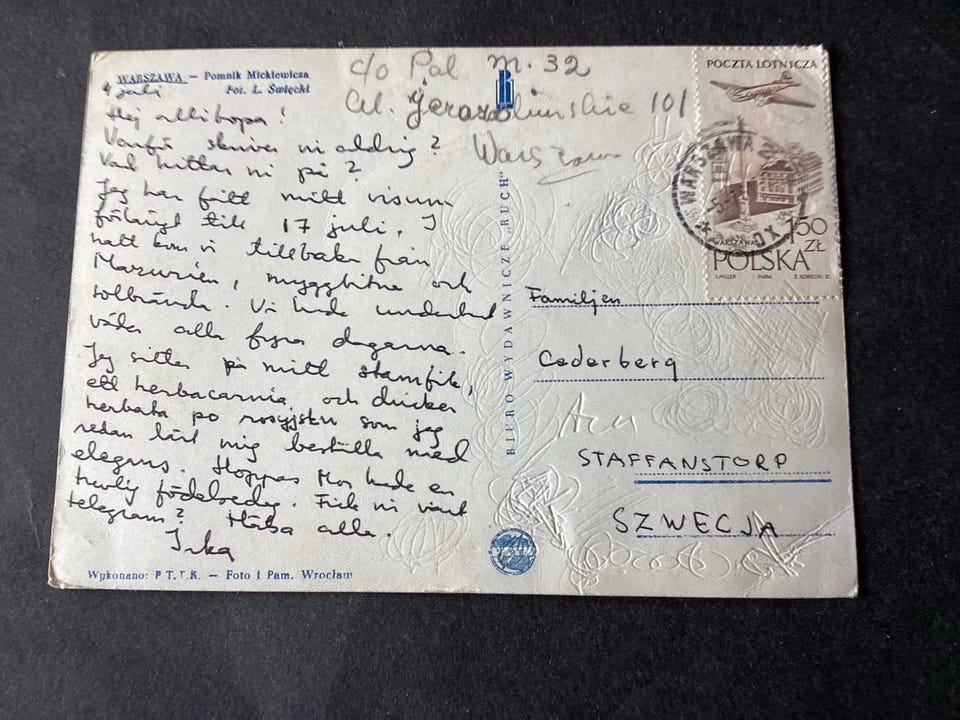 WARSZAWA — Pomnik Mickiewicza
Fot. L. Święcki
4 juli
Hej allihopa!
Varför skriver ni aldrig?
Vad hittar ni på?
Jag har fått mitt visum
förlängt till 17 juli. I
natt kom vi tillbaka från
Mazurien, myggbitna och
solbrända. Vi hade underbart
väder alla fyra dagarna.
Jag sitter på mitt stamfik,
ett herbaciarnia och dricker
herbata po rosyjsku som jag
redan lärt mig beställa med
elegans. Hoppas Mor hade en
trevlig födelsedag. Fick ni vårt
telegram? Hälsa alla.
c/o Pal m. 32
Al. Jerozolimskie 101
Warszawa
BIURO WYDAWNICZE „RUCH”
POCZTA LOTNICZA
WARSZAWA
1,50
ZŁ
POLSKA
Familjen
Cederberg
STAFFANSTORP
SZWECJA
PTTK
Wykonano: P.T.T.K. — Foto i Pam. Wrocław